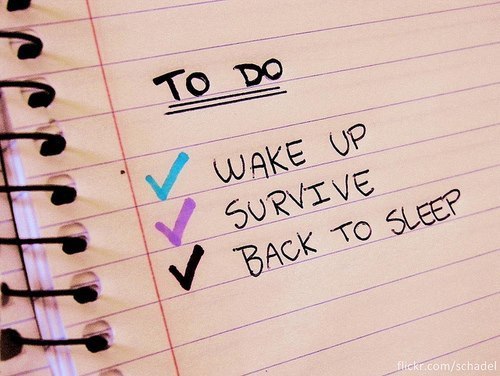 TO DO
WAKE UP
SURVIVE
BACK TO SLEEP
flickr.com/schadel